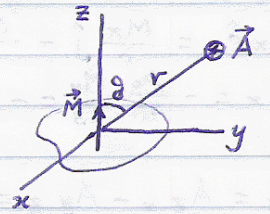 z
A⃗
r
ϑ
M⃗
y
x